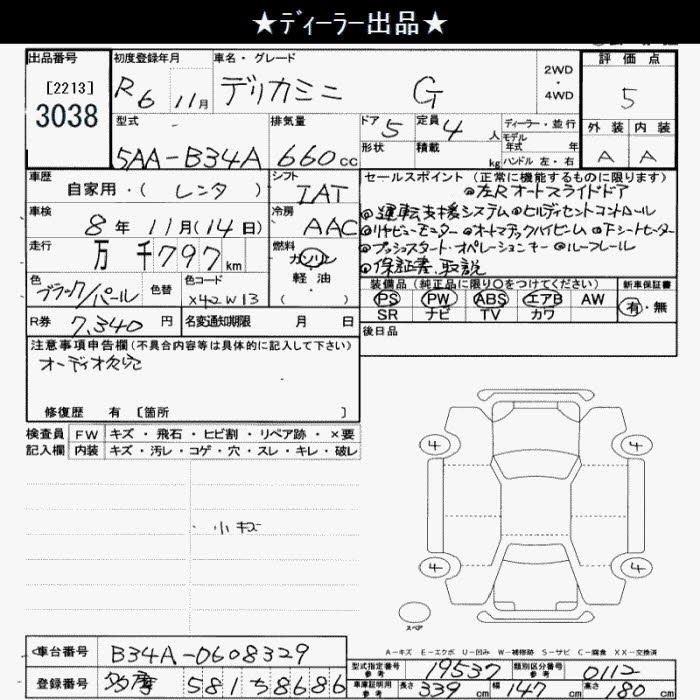 ★ディーラー出品★
出品番号 [2213] 3038
初度登録年月 R6 11月
車名・グレード デリカミニ G
2WD・4WD
評価点 5
外装 A 内装 A
型式 5AA-B34A
排気量 660cc
ドア 5
定員 4人
形状 積載 kg
ディーラー・並行
モデル年式 年
ハンドル 左・右
車歴 自家用・( レンタ )
シフト IAT
車検 8年11月(14日)
冷房 AAC
走行 万千797km
燃料 ガソリン・軽油
色 ブラック/パール
色替
色コード X42W13
R券 7,340円
名変通知期限 月 日
セールスポイント(正常に機能するものに限ります)
@左Rオートスライドドア
@運転支援システム@ヒルディセントコントロール
@オートマチックハイビーム@下シートヒーター
@プッシュスタート・オペレーションキー@ルーフレール
@保証書、取説
装備品(純正品に限り○をつけてください)
PS PW ABS エアB AW
SR ナビ TV カワ
新車保証書 有・無
後日品
注意事項申告欄(不具合内容等は具体的に記入して下さい)
オーディオ欠完
修復歴 有 〔箇所 〕
検査員 FW キズ・飛石・ヒビ割・リペア跡・×要
記入欄 内装 キズ・汚レ・コゲ・穴・スレ・キレ・破レ
・小キズ
4 4
4 4
スペア
A-キズ E-エクボ U-凹み W-補修跡 S-サビ C-腐食 XX-交換済
車台番号 B34A-0608329
登録番号 多摩 581 ち 8686
型式指定番号 参考 19537
類別区分番号 参考 0112
車庫証明用 参考 長さ 339cm 幅 147cm 高さ 180cm